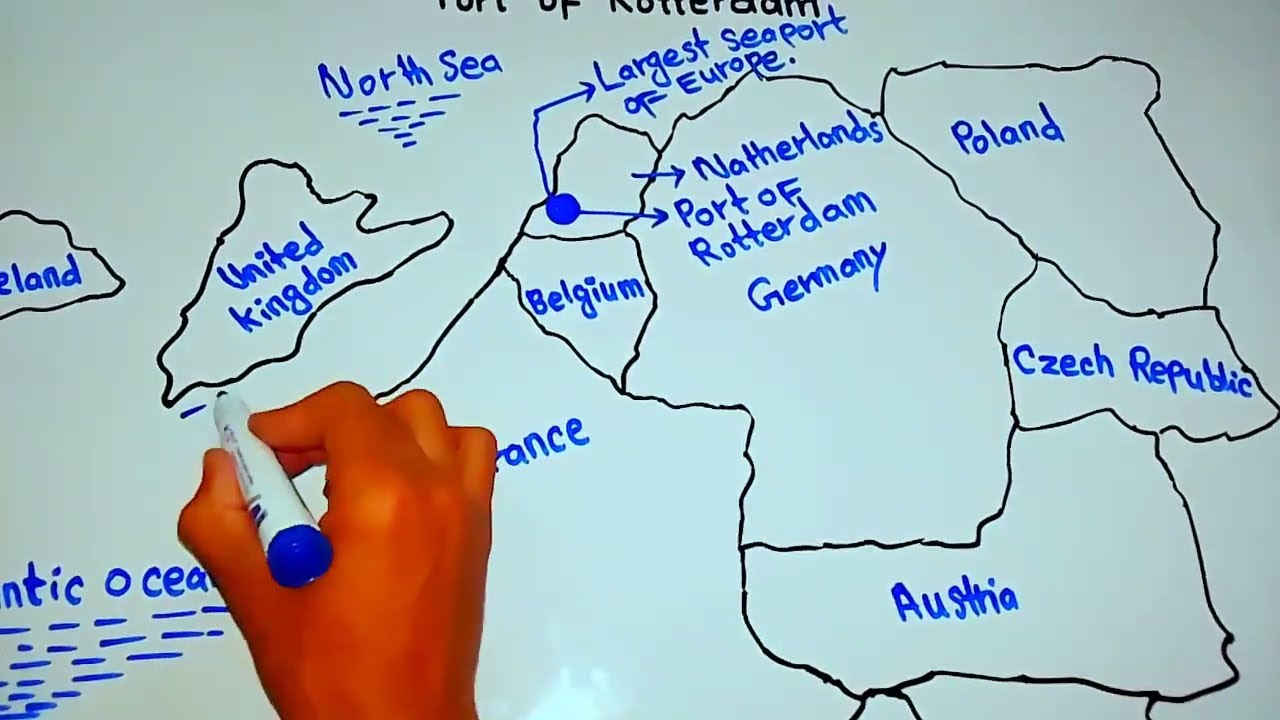 Port of Rotterdam
North Sea
Largest Seaport
of Europe.
Poland
Natherlands
Port of
Rotterdam
United
kingdom
eland
Belgium
Germany
Czech Republic
rance
ntic Ocea
Austria